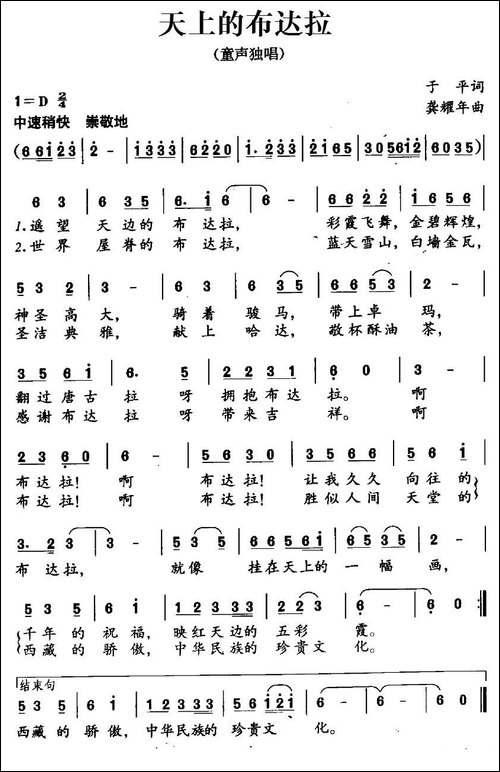 天上的布达拉
(童声独唱)
于 平词
1=D 2/4
龚耀年曲
中速稍快 崇敬地
(66123 | 2 - | 1.2333 | 60220 | 1.2333 | 2165 | 305612 | 6035) |
6 3 | 6 35 | 6. 1 | 6 6 - | 6622 | 1656 |
1.遥望 天边的 布达拉, 彩霞飞舞,金碧辉煌,
2.世界 屋脊的 布达拉, 蓝天雪山,白墙金瓦,
53 2 | 3 - | 6 33 | 6 33 | 66 53 | 2 - |
神圣高大, 骑着 骏马, 带上卓 玛,
圣洁典雅, 献上 哈达, 敬杯酥油 茶,
35 61 | 6. 5 | 22 31 | 6 0 | 3 - |
翻过唐古 拉 呀 拥抱布达 拉。 啊
感谢布达 拉 呀 带来吉 祥。 啊
23 60 | 6 - | 56 30 | 35 66 | 6 65 |
布达拉! 啊 布达拉! 让我久久 向往的
布达拉! 啊 布达拉! 胜似人间 天堂的
3. 2 3 | 3 - | 5 33 | 5 6 5 61 | 6535 | 6 - |
布 达拉, 就像 挂在天上的 一幅 画,
53 5 | 6 1 | 12 333 | 23 5 | 6 - | 6 0 :|
千年的 祝福, 映红天边的 五彩 霞。
西藏的 骄傲, 中华民族的 珍贵文 化。
结束句
53 5 | 6 1 | 12333 | 5 6121 | 6 - | 6 - | 6 0 ‖
西藏的 骄傲, 中华民族的 珍贵文 化。